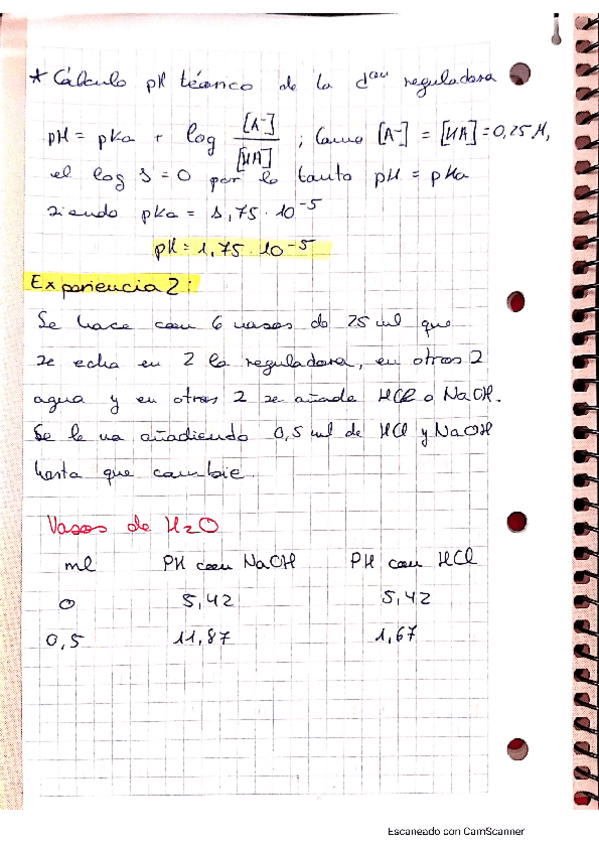 * Cálculo pH teórico de la dcon reguladora
pH = pKa + log [A-]/[HA] ; Como [A-] = [HA] = 0,25 M,
el log 1 = 0 por lo tanto pH = pKa
siendo pKa = 1,75 · 10-5
pH = 1,75 · 10-5
Experiencia 2:
Se hace con 6 vasos de 25 ml que
se echa en 2 la reguladora, en otros 2
agua y en otros 2 se añade HCl o NaOH.
Se le va añadiendo 0,5 ml de HCl y NaOH
hasta que cambie
Vasos de H2O
ml PH con NaOH PH con HCl
0 5,42 5,42
0,5 11,87 1,67
Escaneado con CamScanner